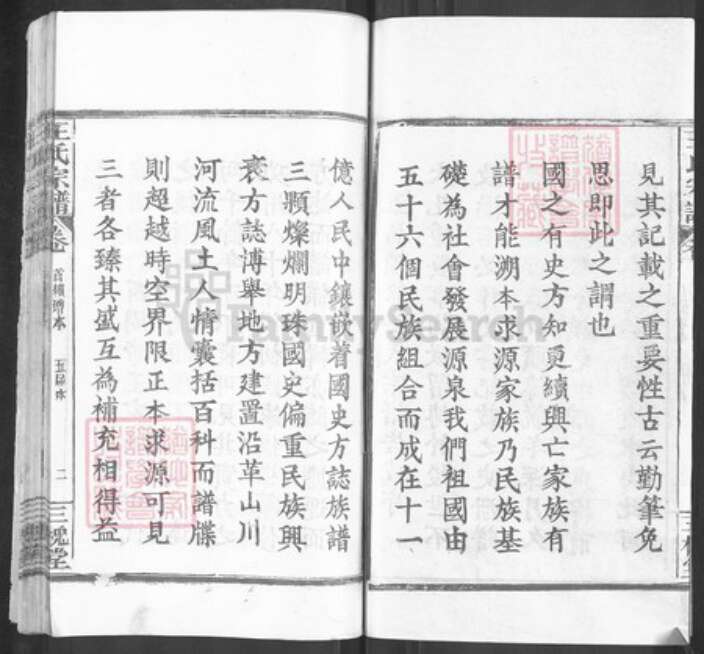 見其記載之重要性古云勤筆免
思即此之謂也
國之有史方知更續興亡家族有
譜才能溯本求源家族乃民族基
礎為社會發展源泉我們祖國由
五十六個民族組合而成在十一
億人民中鑲嵌着國史方誌族譜
三顆燦爛明珠國史偏重民族興
衰方誌溥舉地方建置沿革山川
河流風土人情囊括百科而譜牒
則超越時空界限正本求源可見
三者各臻其盛互為補充相得益
王氏宗譜
卷
二
三槐堂
FamilySearch